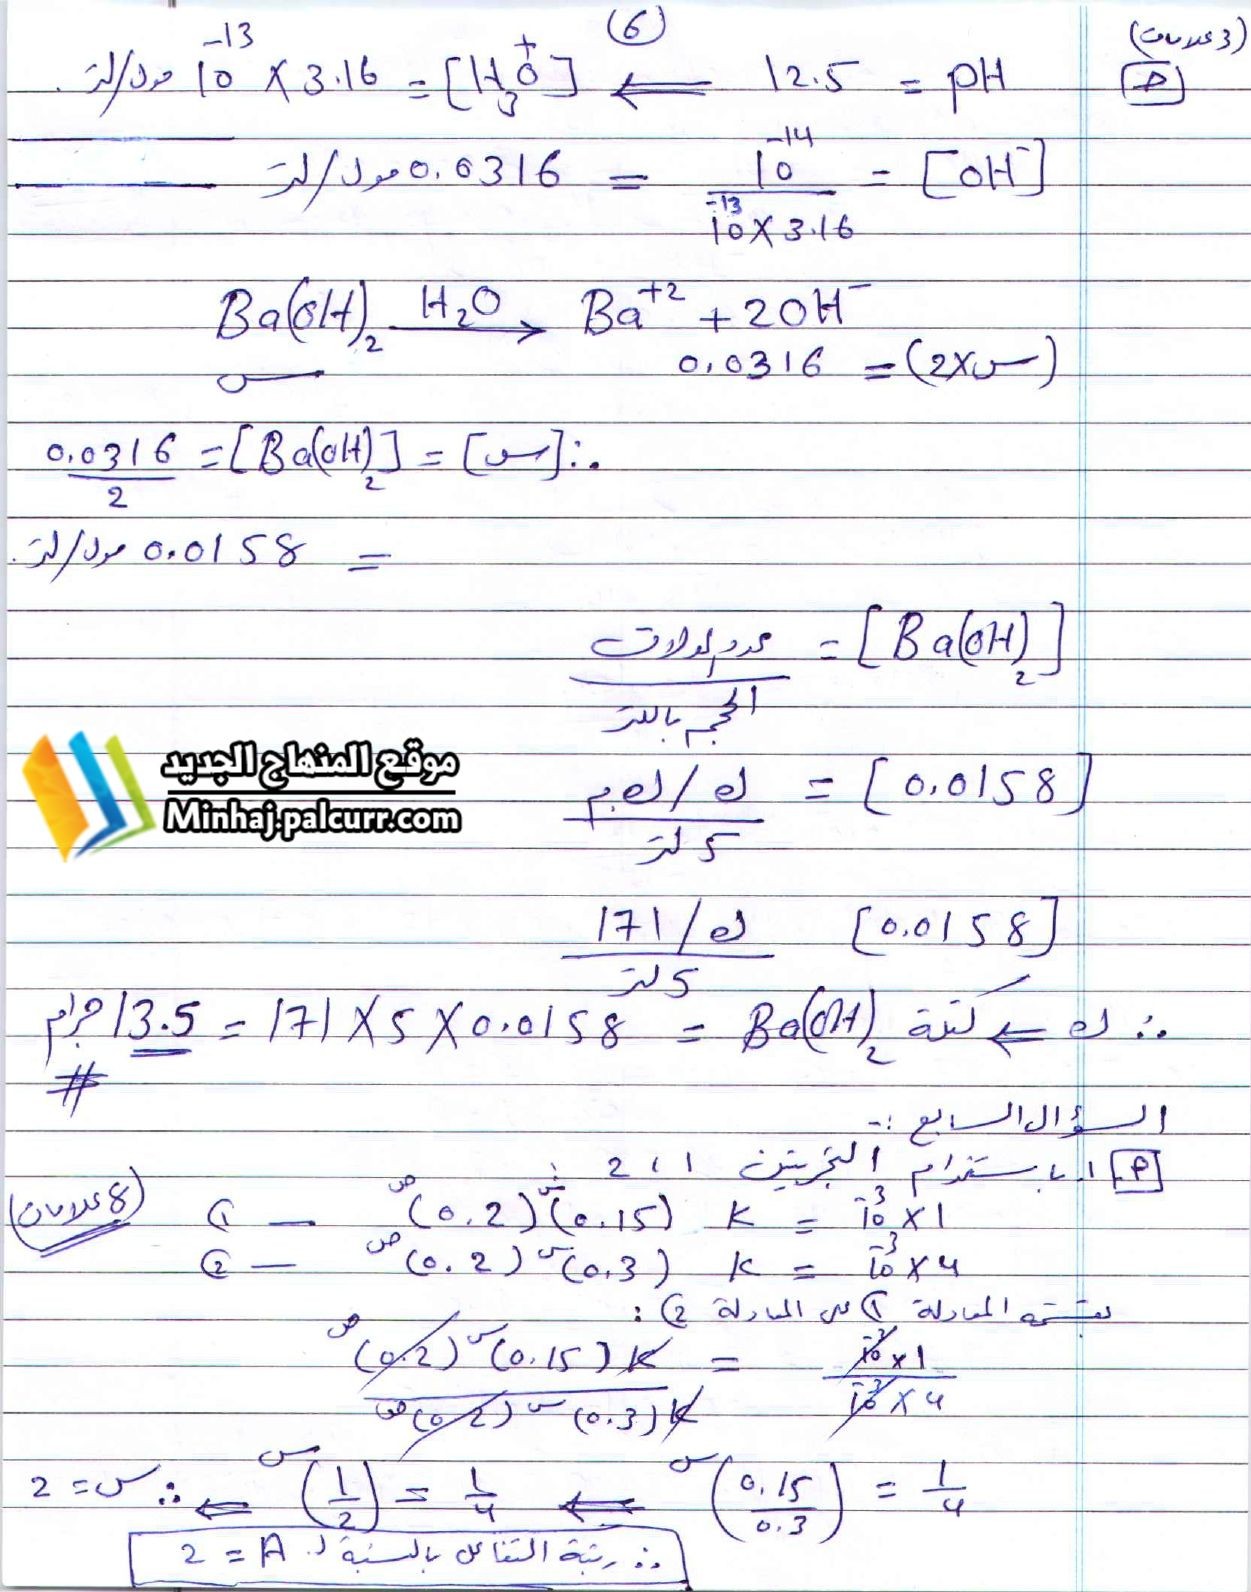 (6)
(3 علامات)
ج pH = 12.5 ⇐ [H3O+] = 3.16 × 10^-13 مول/لتر.
[OH-] = 10^-14 / 3.16 × 10^-13 = 0.0316 مول/لتر
Ba(OH)2 —H2O→ Ba+2 + 2OH-
س (2×س) = 0.0316
∴ [س] = [Ba(OH)2] = 0.0316 / 2
= 0.0158 مول/لتر.
[Ba(OH)2] = عدد المولات / الحجم باللتر
موقع المنهاج الجديد
Minhaj.palcurr.com
[0.0158] = ك/ك.م / 5 لتر
[0.0158] ك/171 / 5 لتر
∴ ك ⇐ كتلة Ba(OH)2 = 0.0158 × 5 × 171 = 13.5 جرام
#
السؤال السابع :-
(8 علامات)
أ 1. باستخدام التجربتين 1 ، 2 :
1 × 10^-3 = K (0.15)^س (0.2)^ص — ①
4 × 10^-3 = K (0.3)^س (0.2)^ص — ②
بقسمة المعادلة ① على المعادلة ② :
1 × 10^-3 / 4 × 10^-3 = K (0.15)^س (0.2)^ص / K (0.3)^س (0.2)^ص
1/4 = (0.15/0.3)^س ⇐ 1/4 = (1/2)^س ⇐ ∴ س = 2
∴ رتبة التفاعل بالنسبة لـ A = 2